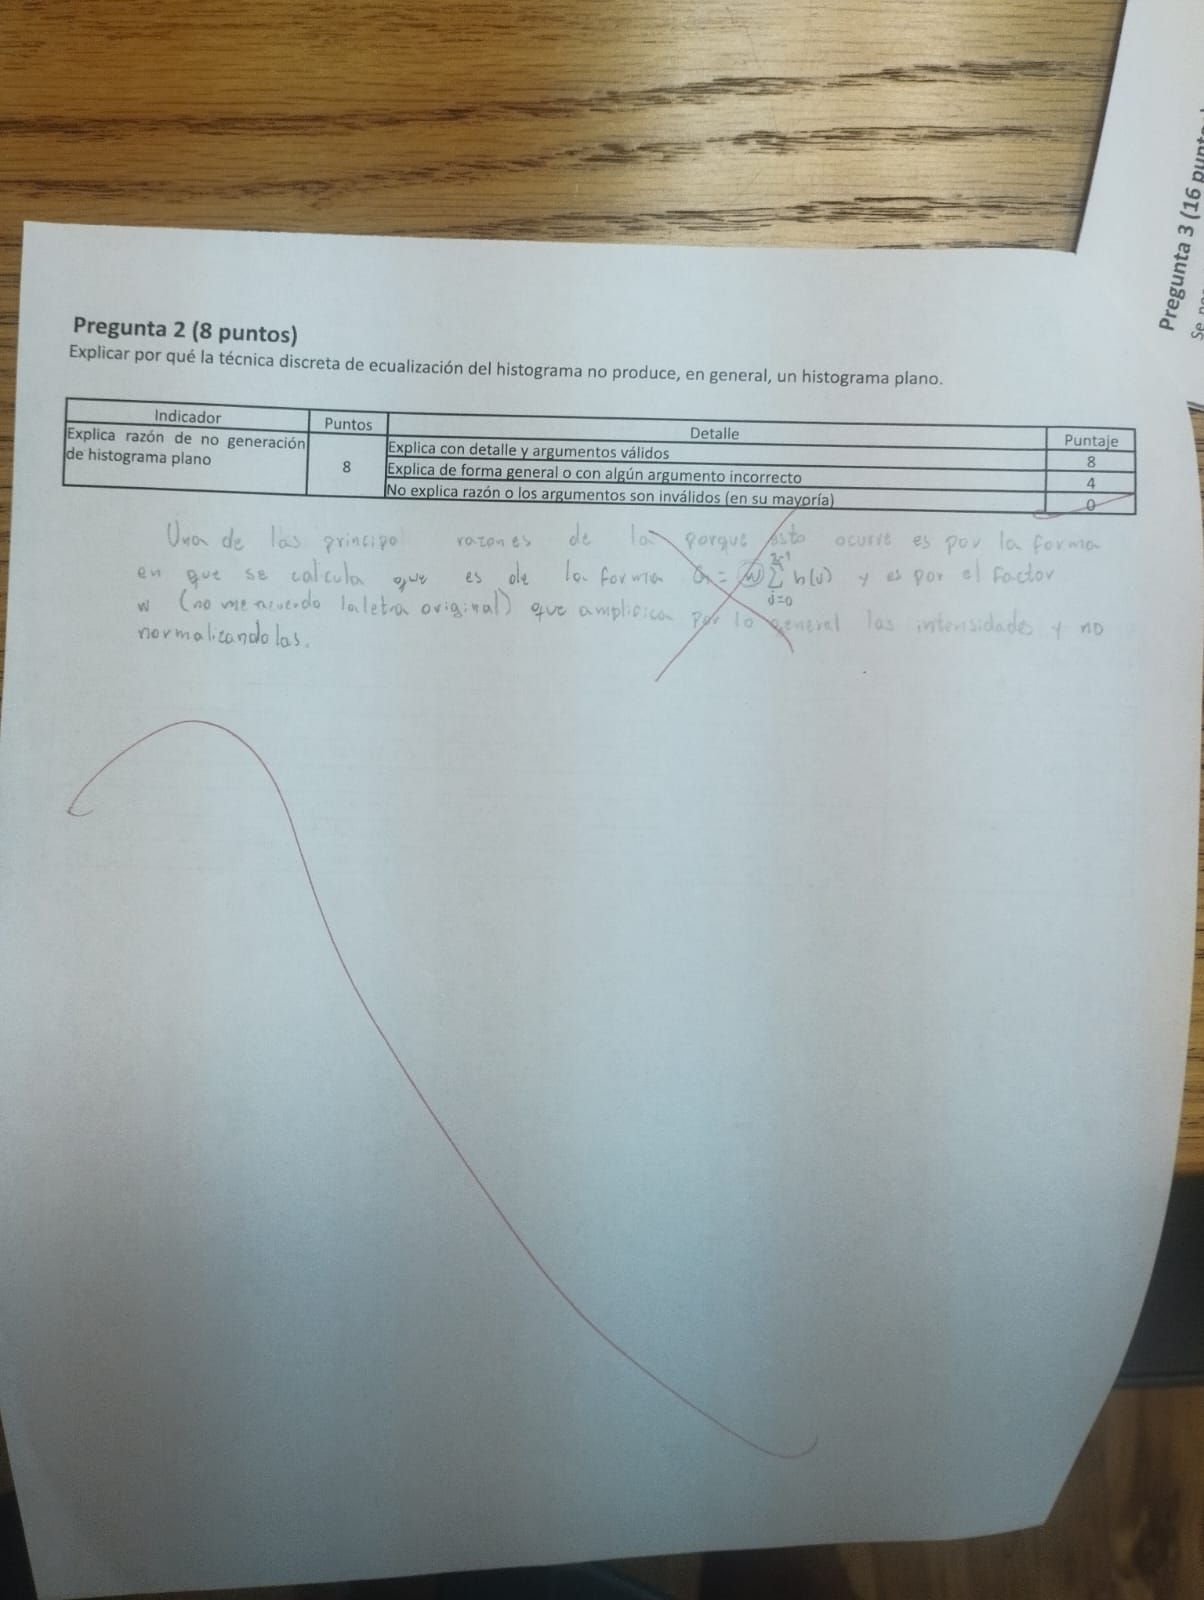 Pregunta 3 (16 punto
Se
Pregunta 2 (8 puntos)
Explicar por qué la técnica discreta de ecualización del histograma no produce, en general, un histograma plano.
Indicador Puntos Detalle Puntaje
Explica razón de no generación de histograma plano 8 Explica con detalle y argumentos válidos 8
Explica de forma general o con algún argumento incorrecto 4
No explica razón o los argumentos son inválidos (en su mayoría) 0
Una de las principal razones de la porque esto ocurre es por la forma
en que se calcula que es de la forma = w Σ h(u) y es por el factor
j=0
w (no me acuerdo la letra original) que amplifica por lo general las intensidades y no
normalizandolas.